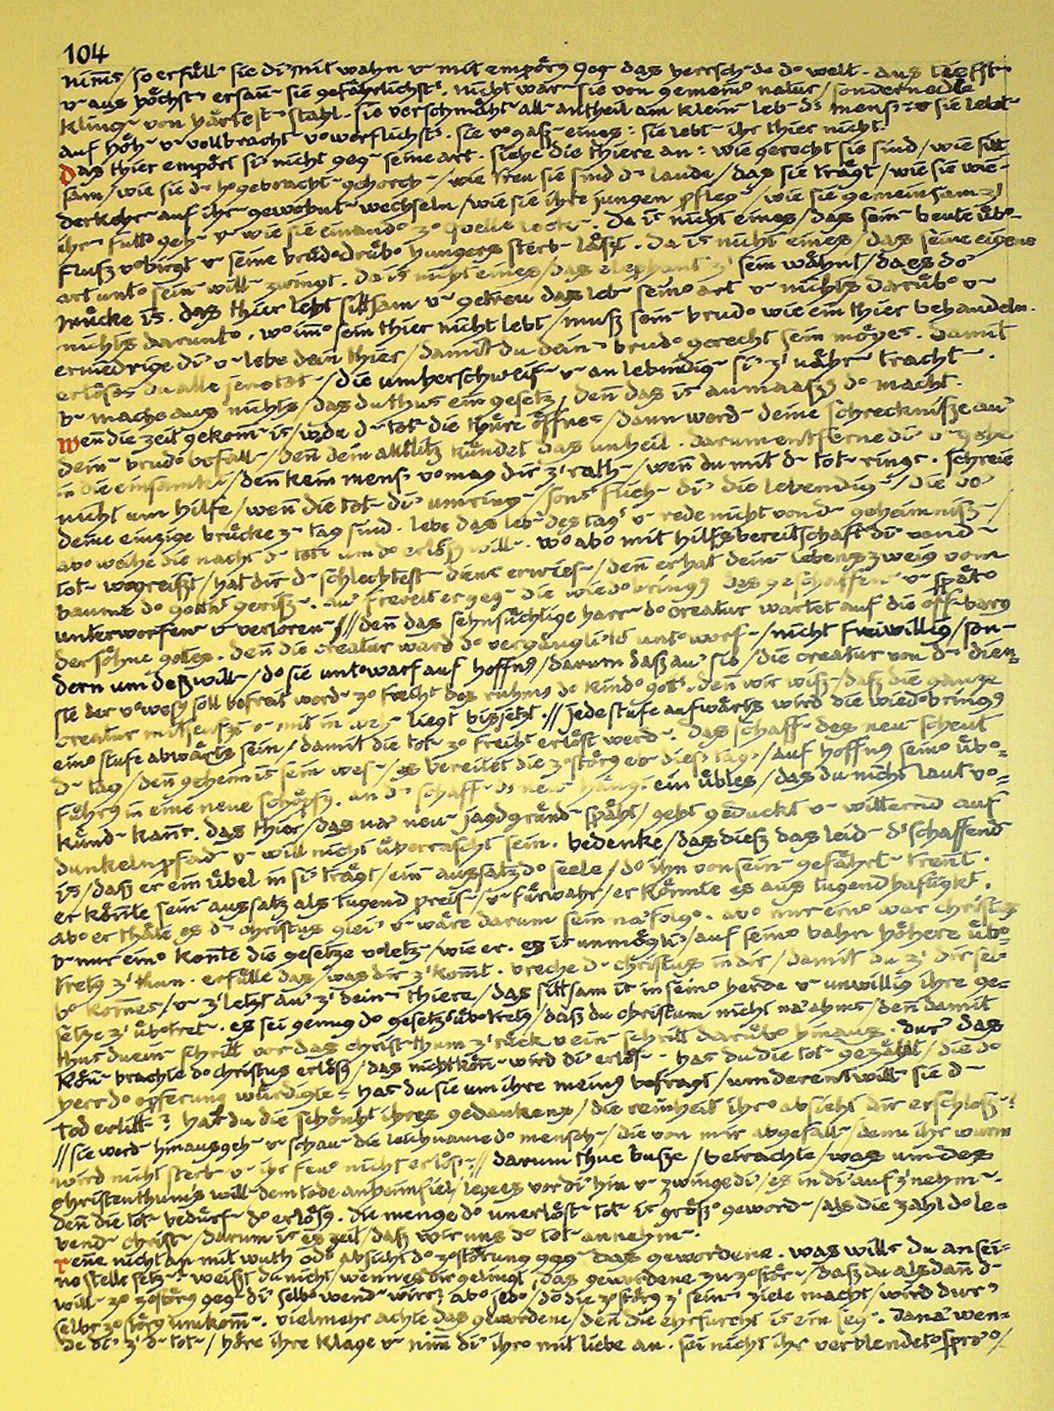 104
nim̄s / so erfüll- sie di' mit wahn v- mit empör9 geg- das herrsch-de do welt. aus tiefst-
v- aus höchst- ersañ- sie gefährlichst's. nicht war sie von gemeino natur / sondern edle
kling- von härtest- stahl. sie verschmäht- all- antheil am klein- leb- ds mensch- v- sie lebt-
auf höh- v- vollbracht- voworflichst's. sie vogaß- eines: sie lebt- ihr thier nicht.
das thier empört si' nicht geg- seine art. siehe die thiere an: wie gerecht sie sind / wie sitt-
sam / wie sie d- hogebracht- gehorch- / wie treu sie sind d- lande / das sie trägt / wie sie wie-
derkehr- auf ihr- gewohnt- wechseln / wie sie ihre jungen pfleg- / wie sie gemeinsam z'
ihr- futto geh- v- wie sie einando zo quelle lock-. da is nicht eines / das sein- beute übo-
fluß vobirgt v- seine brüdo drübo hungers sterb- läßt. da is nicht eines / das seine eigene
art unto sein- will- zwingt. da is nicht eines / das elephant z' sein wähnt / da es do
mücke is. das thier lebt sittsam v- getreu das leb- seino art v- nichts darübo v-
nichts darunto. wo im̄o sein thier nicht lebt / muß sein- brudo wie ein thier behandeln.
erniedrige di' v- lebe dein thier / damit du dein- brudo gerecht sein möges. damit
erlöses du alle jene tot- / die umherschweif- v- an lebendig- si' z' nähr- tracht-.
v- mache aus nichts / das du thus ein gesetz / deñ das is anmaaß9 do macht.
weñ die zeit gekom̄- is / v- du d- tot- die thüre öffnes / dann werd- deine schrecknisse au'
dein- brudo befall- / deñ dein antlitz kündet das unheil. darum entferne di' v- gehe
in die einsamkt / deñ kein mens' vomag dir z' rath- / weñ du mit d- tot- rings. schreie
nicht um hilfe / weñ die tot- di' umring- / sons flieh- di' die lebendig- / die do'
deine einzige brücke z- tag sind. lebe das leb- des tag's v- rede nicht von d- geheimniß- /
abo weihe die nacht d- tot- um do erlös9 will-. wo abo mit hilfsbereitschaft di' von d-
tot- wegreißt / hat dir d- schlechtest- diens erwies- / deñ er hat dein- lebenszweig vom
baume do gottht geriß-. au' frevelt er geg- die wiedobring9 des geschaffen- v- späto
unterworfen- v- verloren- /// deñ das sehnsüchtige harr- do creatur wartet auf die off-bar9
der söhne gotes. deñ die creatur ward do vergänglikt unto worf- / nicht freiwillig / son-
dern um deß will- / do sie untowarf auf hoffn9 / darum daß au' sie / die creatur von d- dien-
ste der vowes9 soll befreit werd- zo freiht des ruhms do kindo gots. deñ wir wiß- / daß die ganze
creatur mitseufzt v- mit in weh- liegt bis jetzt. // jede stufe aufwärts wird die wiedobring9
eino stufe abwärts sein / damit die tot- zo freiht erlöst werd-. das schaff- des neu- scheut
d- tag / deñ geheim is sein wes- / es bereitet die zostör9 eb- dieß tags / auf hoffn9 seino übo-
führ9 in eine neue schöpf9. an d- schaff- ds neu- hängt ein übles / das du nicht laut vo-
künd- kanns. das thier / das na' neu- jagdgründ- späht / geht geduckt v- witternd auf
dunkeln pfad- v- will nicht überrascht sein. bedenke / das dieß das leid- ds schaffend-
is / daß er ein übel in si' trägt / ein- aussatz do seele / do ihn von sein- gefährt- treñt.
er köñte sein- aussatz als tugend preis- / v- fürwahr / er könnte es aus tugendhaftigkt.
abo er thäte es d- christus glei' v- wäre darum sein na'folgo. abo nur eino war christus
v- nur eino konte die gesetze voletz- / wie er. es is unmögli' / auf seino bahn höhere übo-
tret9 z' thun. erfülle das / was dir z' kom̄t. breche d- christus in dir / damit du z' dir sel-
bo kom̄es / v- z' letzt au' z' dein- thiere / das sittsam is in seino herde v- unwillig ihre ge-
setze z' übotret-. es sei genug do gesetzsübotret9 / daß du christum nicht na'ahms / deñ damit
thus du ein- schritt vor das christ-thum z' rück v- ein- schritt darübo hinaus. dur' das
köñ- brachte do christus erlös9 / das nichtköñ- wird di' erlös-. has du die tot- gezählt / die do
herr do opferung würdigte? has du sie um ihre mein9 befragt / um derentwill- sie d-
tod erlitt-? has du die schönht ihres gedankens / die reinheit ihro absicht dir erschloß-?
// sie werd- hinausgeh- v- schau- die leichname do mensch- / die von mir abgefall- / denn ihr wurm
wird nicht sterb- v- ihr feuo nicht erlösch- // darum thue buße / betrachte / was um des
christenthums will- dem tode anheimfiel / leges vor di' hin v- zwinge di' / es in di' auf z' nehm-.
deñ die tot- bedürf- do erlös9. die menge do unerlöst- tot- is größo geword- / als die zahl do le-
bend- christ- / darum is es zeit / daß wir uns do tot- annehm-.
reñe nicht an mit wuth odo absicht do zostörung geg- das gewordene. was wills du an sei-
no stelle setz-? weißt du nicht / wenn es dir gelingt / das gewordene zu zostör- / daß du alsdañ d-
will- zo zostör9 geg- di' selbo wend- wirs? abo jedo / do die zostör9 z' sein- ziele macht / wird dur'
selbs zostör9 umkom̄-. vielmehr achte das gewordene / deñ die ehrfurcht is ein seg-. dana' wen-
de di' z' d- tot- / höre ihre klage v- nim̄ di' ihro mit liebe an. sei nicht ihr verblendeto spre'o /